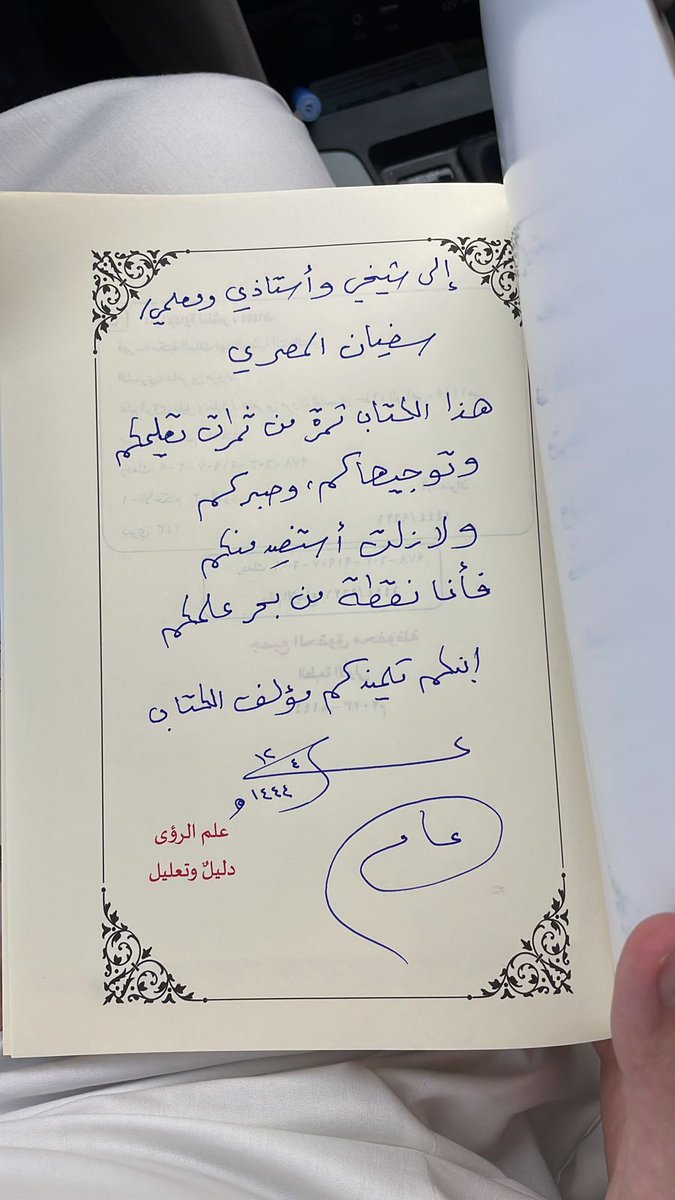 إلى شيخي وأستاذي ومعلمي/
سفيان المصري
هذا الكتاب ثمرة من ثمرات تعليمكم
وتوجيهاتكم، وصبركم
ولا زلت أستفيد منكم
فأنا نقطة من بحر علمكم
ابنكم تلميذكم مؤلف الكتاب
١٢
٤
١٤٤٤هـ
علم الرؤى
دليلٌ وتعليل